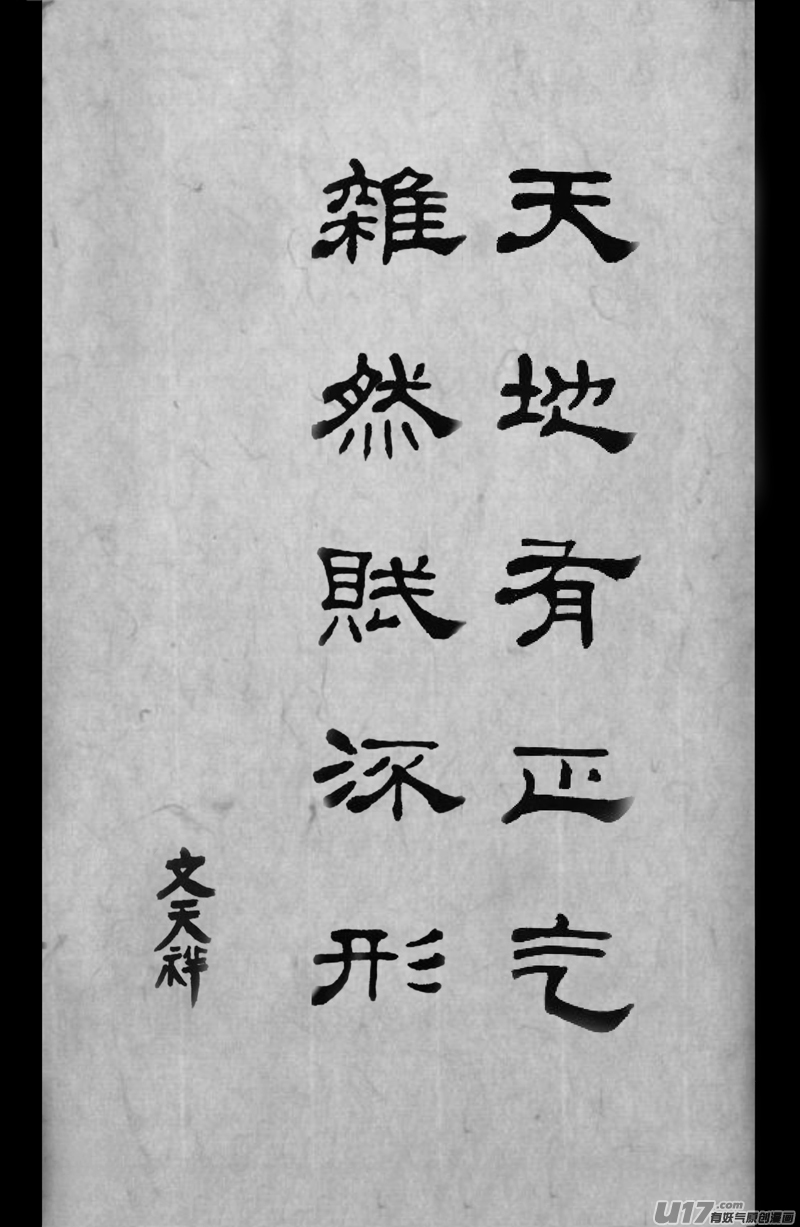 天地有正气
雜然賦流形
文天祥
U17.com
有妖气原创漫画